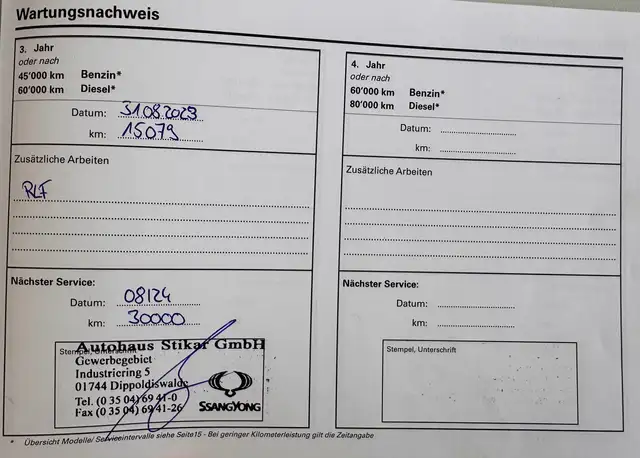 Wartungsnachweis
3. Jahr
oder nach
45'000 km Benzin*
60'000 km Diesel*
Datum: 31.08.2023
km: 15079
Zusätzliche Arbeiten
RLF
Nächster Service:
Datum: 08/24
km: 30000
Stempel, Unterschrift
Autohaus Stikar GmbH
Gewerbegebiet
Industriering 5
01744 Dippoldiswalde
Tel. (0 35 04) 69 41-0
Fax (0 35 04) 69 41-26
SSANGYONG
4. Jahr
oder nach
60'000 km Benzin*
80'000 km Diesel*
Datum:
km:
Zusätzliche Arbeiten
Nächster Service:
Datum:
km:
Stempel, Unterschrift
* Übersicht Modelle/ Serviceintervalle siehe Seite15 - Bei geringer Kilometerleistung gilt die Zeitangabe